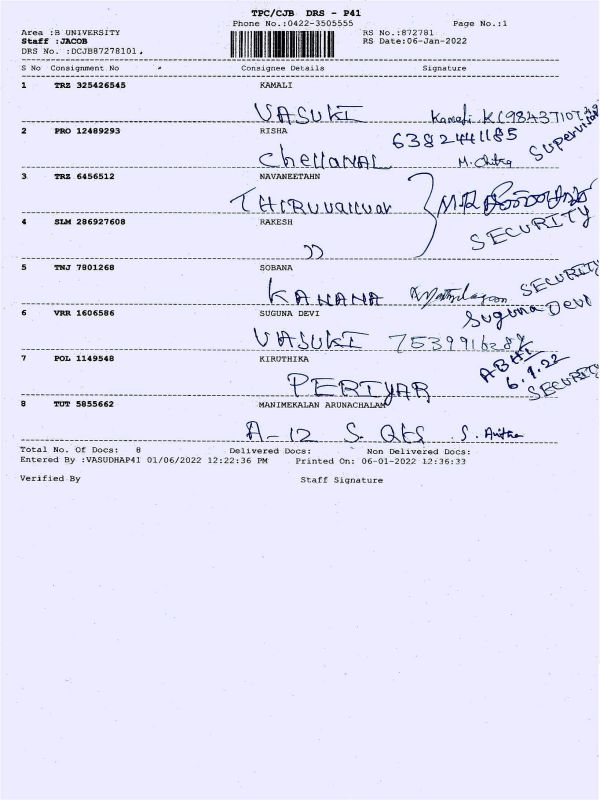 TPC/CJB DRS - P41
Phone No.:0422-3505555 Page No.:1
Area :B UNIVERSITY RS No.:872781
Staff :JACOB RS Date:06-Jan-2022
DRS No. :DCJB87278101,
S No Consignment No Consignee Details Signature
1 TRZ 325426545 KAMALI
VASUKI Kamali K (984371073
2 PRO 12489293 RISHA
6382441185 Supervisor
Chellamal M. Chitra
3 TRZ 6456512 NAVANEETAHN
THIRUVALLUVAR
4 SLM 286927608 RAKESH
SECURITY
))
5 TNJ 7801268 SOBANA
KANANA SECURITY
6 VRR 1606586 SUGUNA DEVI
Suguna Devi
VASUKI
7 POL 1149548 KIRUTHIKA
ABHI
6.1.22
PERIYAR SECURITY
8 TUT 5855662 MANIMEKALAN ARUNACHALAM
A-12 S. Qts S. Anitha
Total No. Of Docs: 8 Delivered Docs: Non Delivered Docs:
Entered By :VASUDHAP41 01/06/2022 12:22:36 PM Printed On: 06-01-2022 12:36:33
Verified By Staff Signature